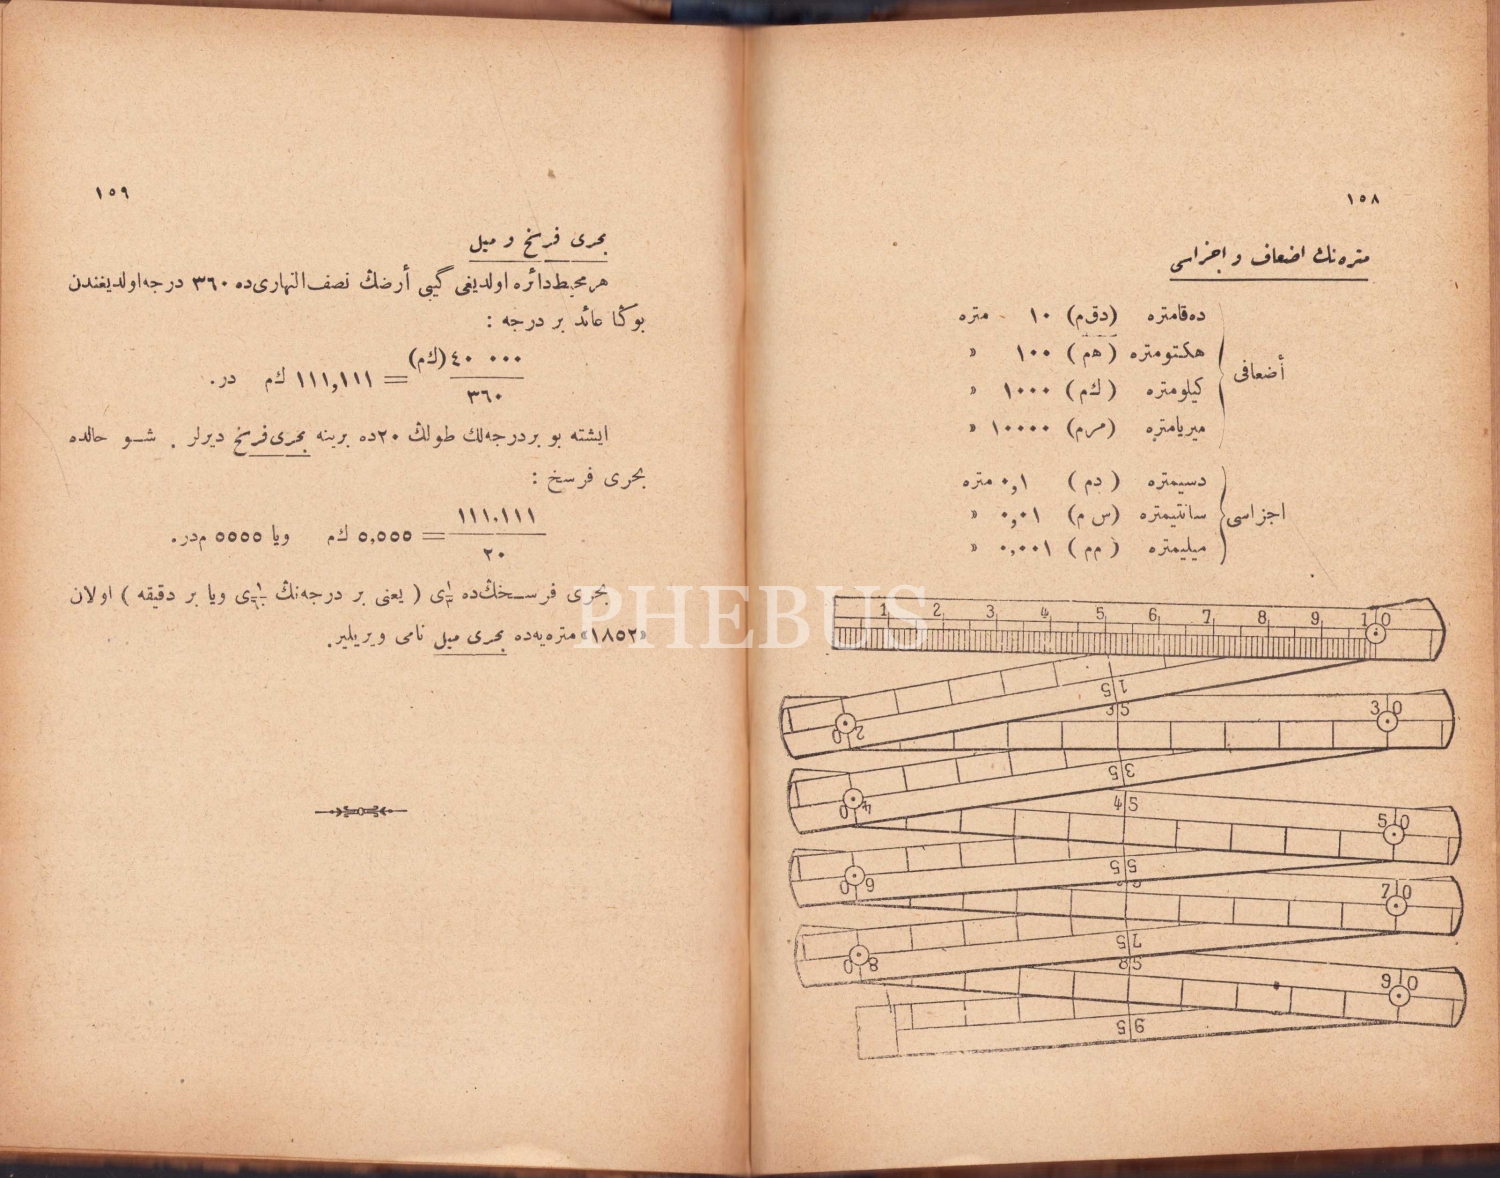 ١٥٨
متره‌نڭ اضعاف و اجزاسی
ده‌قامتره (دقم) ١٠ متره
هكتومتره (هم) ١٠٠ »
أضعافی
كیلومتره (كم) ١٠٠٠ »
میریامتره (مرم) ١٠٠٠٠ »
دسیمتره (دم) ٠,١ متره
اجزاسی
سانتیمتره (سم) ٠,٠١ »
میلیمتره (مم) ٠,٠٠١ »
1 2 3 4 5 6 7 8 9 10
15
20
35
30
35
40
45
50
55
60
70
75
80
85
90
95
١٥٩
بحری فرسخ و میل
هر محیط دائره اولدیغی گیبی أرضڭ نصف النهاری‌ده ٣٦٠ درجه اولدیغندن
بوڭا عائد بر درجه :
٤٠٠٠٠ (كم) / ٣٦٠ = ١١١,١١١ كم در.
ایشته بو بر درجه‌لك طولڭ ٢٠ده برینه بحری فرسخ دیرلر . شو حالده
بحری فرسخ :
١١١.١١١ / ٢٠ = ٥,٥٥٥ كم ویا ٥٥٥٥ م‌در.
بحری فرسخڭ‌ده ١/٣ ی ( یعنی بر درجه‌نڭ ١/٦٠ ی ویا بر دقیقه ) اولان
«١٨٥٢» متره‌یه‌ده بحری میل نامی ویریلیر.
PHEBUS